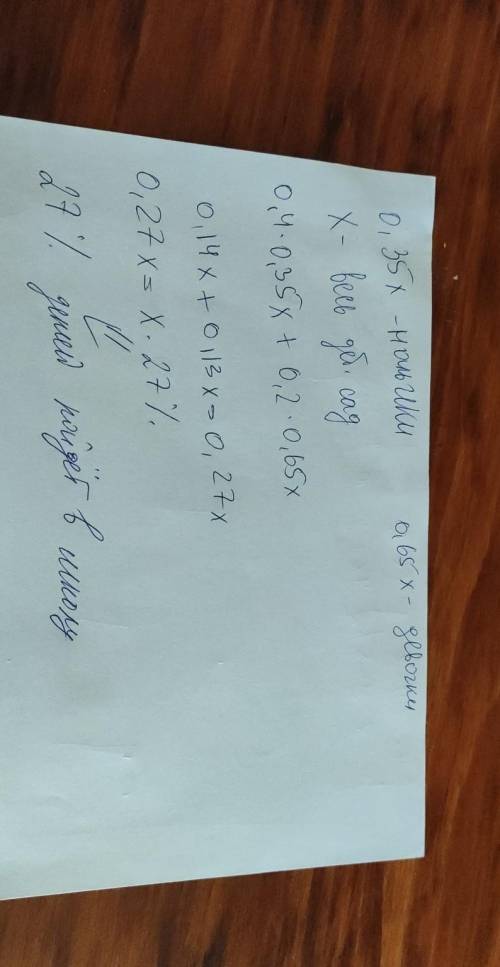 0,35x - мальчики 0,65x - девочки
X - весь дет. сад
0,4·0,35x + 0,2·0,65x
0,14x + 0,13x = 0,27x
0,27x = x·27%
⇓
27% детей пойдёт в школу